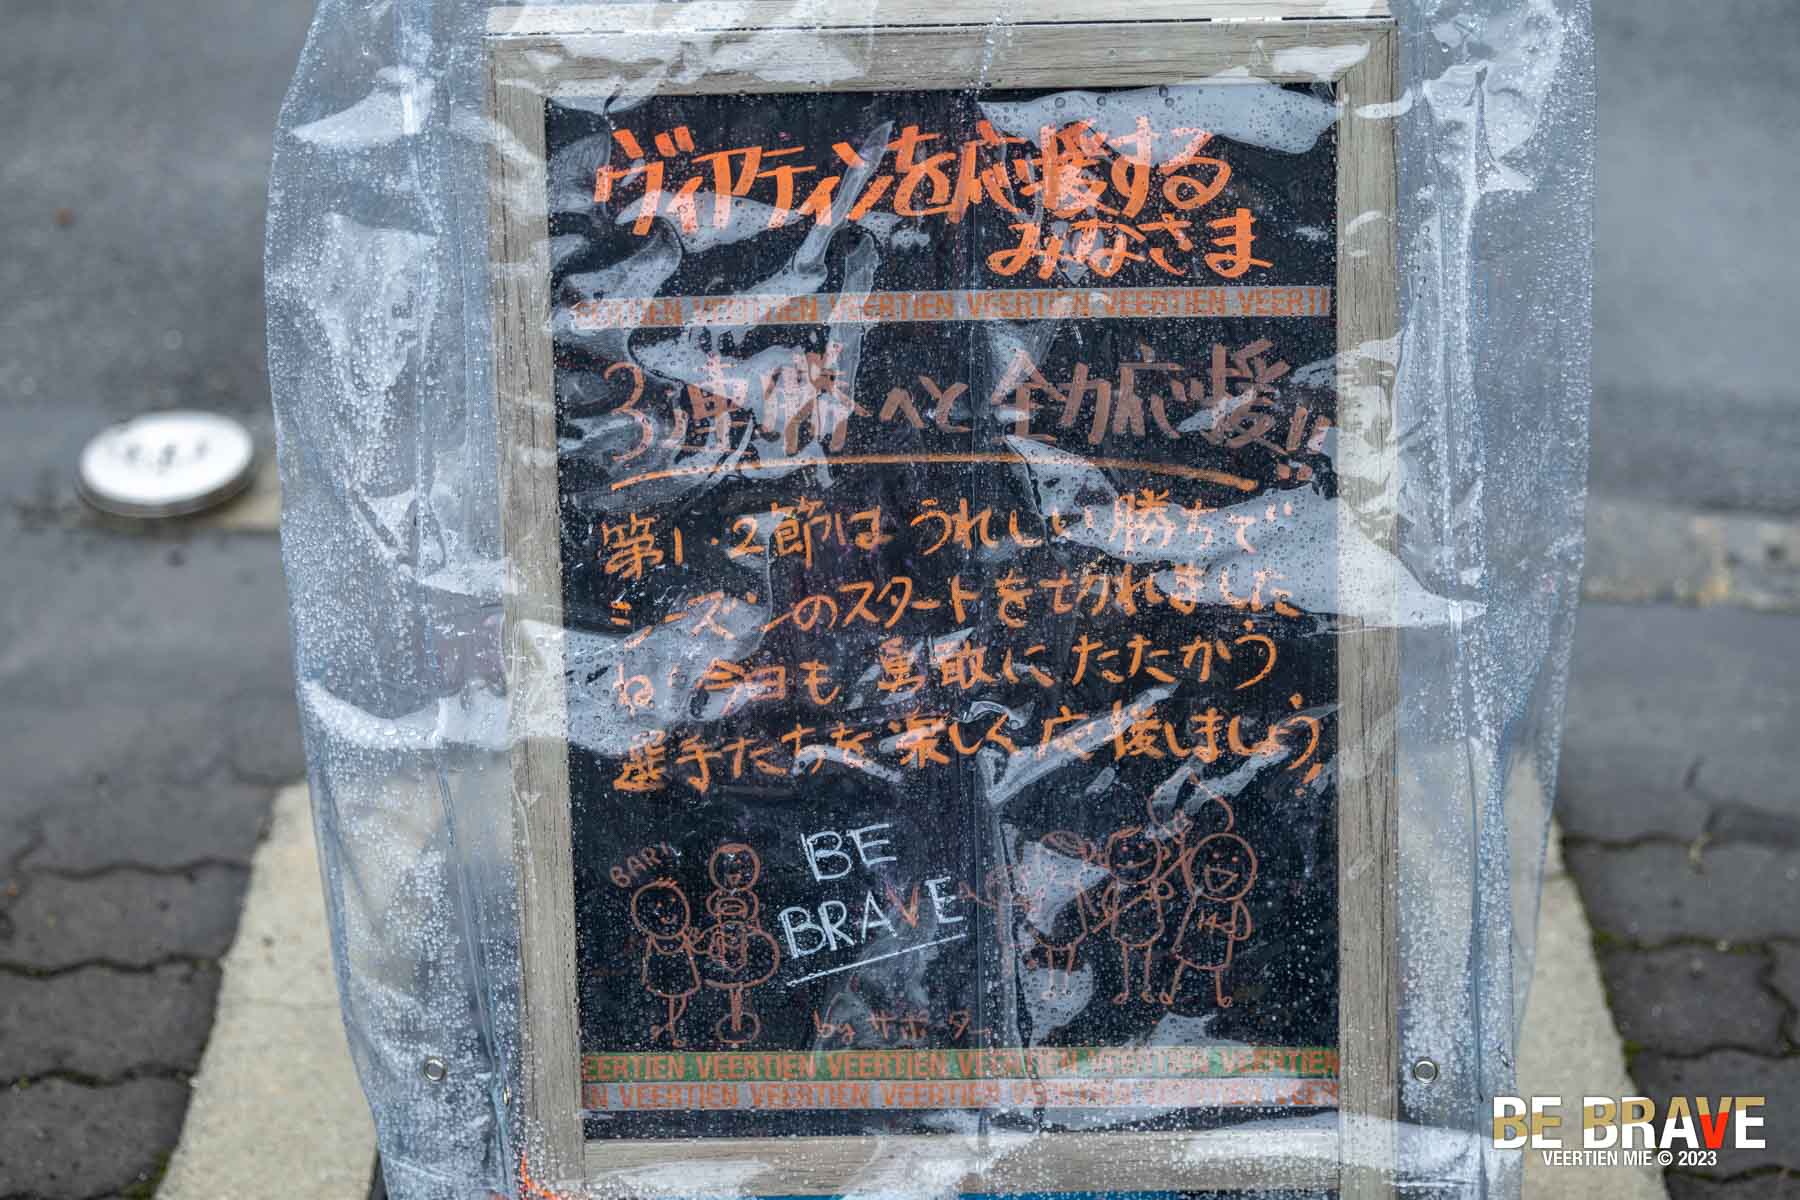 ヴィアティンを応援する
みなさま
EERTIEN VEERTIEN VEERTIEN VEERTIEN VEERTIEN VEERTI
3連勝へと全力応援!!
第1・2節はうれしい勝ちで
シーズンのスタートを切れました
ね! 今日も勇敢にたたかう
選手たちを楽しく応援しましょう!
BARI
BE
BRAVE
by サポーター
EERTIEN VEERTIEN VEERTIEN VEERTIEN VEERTIEN VEERTIEN
N VEERTIEN VEERTIEN VEERTIEN VEERTIEN VEERTIEN VEER
BE BRAVE
VEERTIEN MIE © 2023